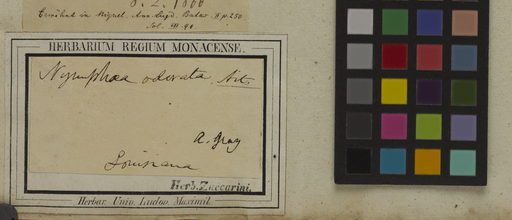 Erwähnt in Miquel. Ann. Lugd. Batav. II p. 250
Sol. III. 90
HERBARIUM REGIUM MONACENSE.
Nymphaea odorata Ait.
A. Gray
Louisiana
Herb. Zuccarini.
Herbar. Univ. Ludov. Maximil.